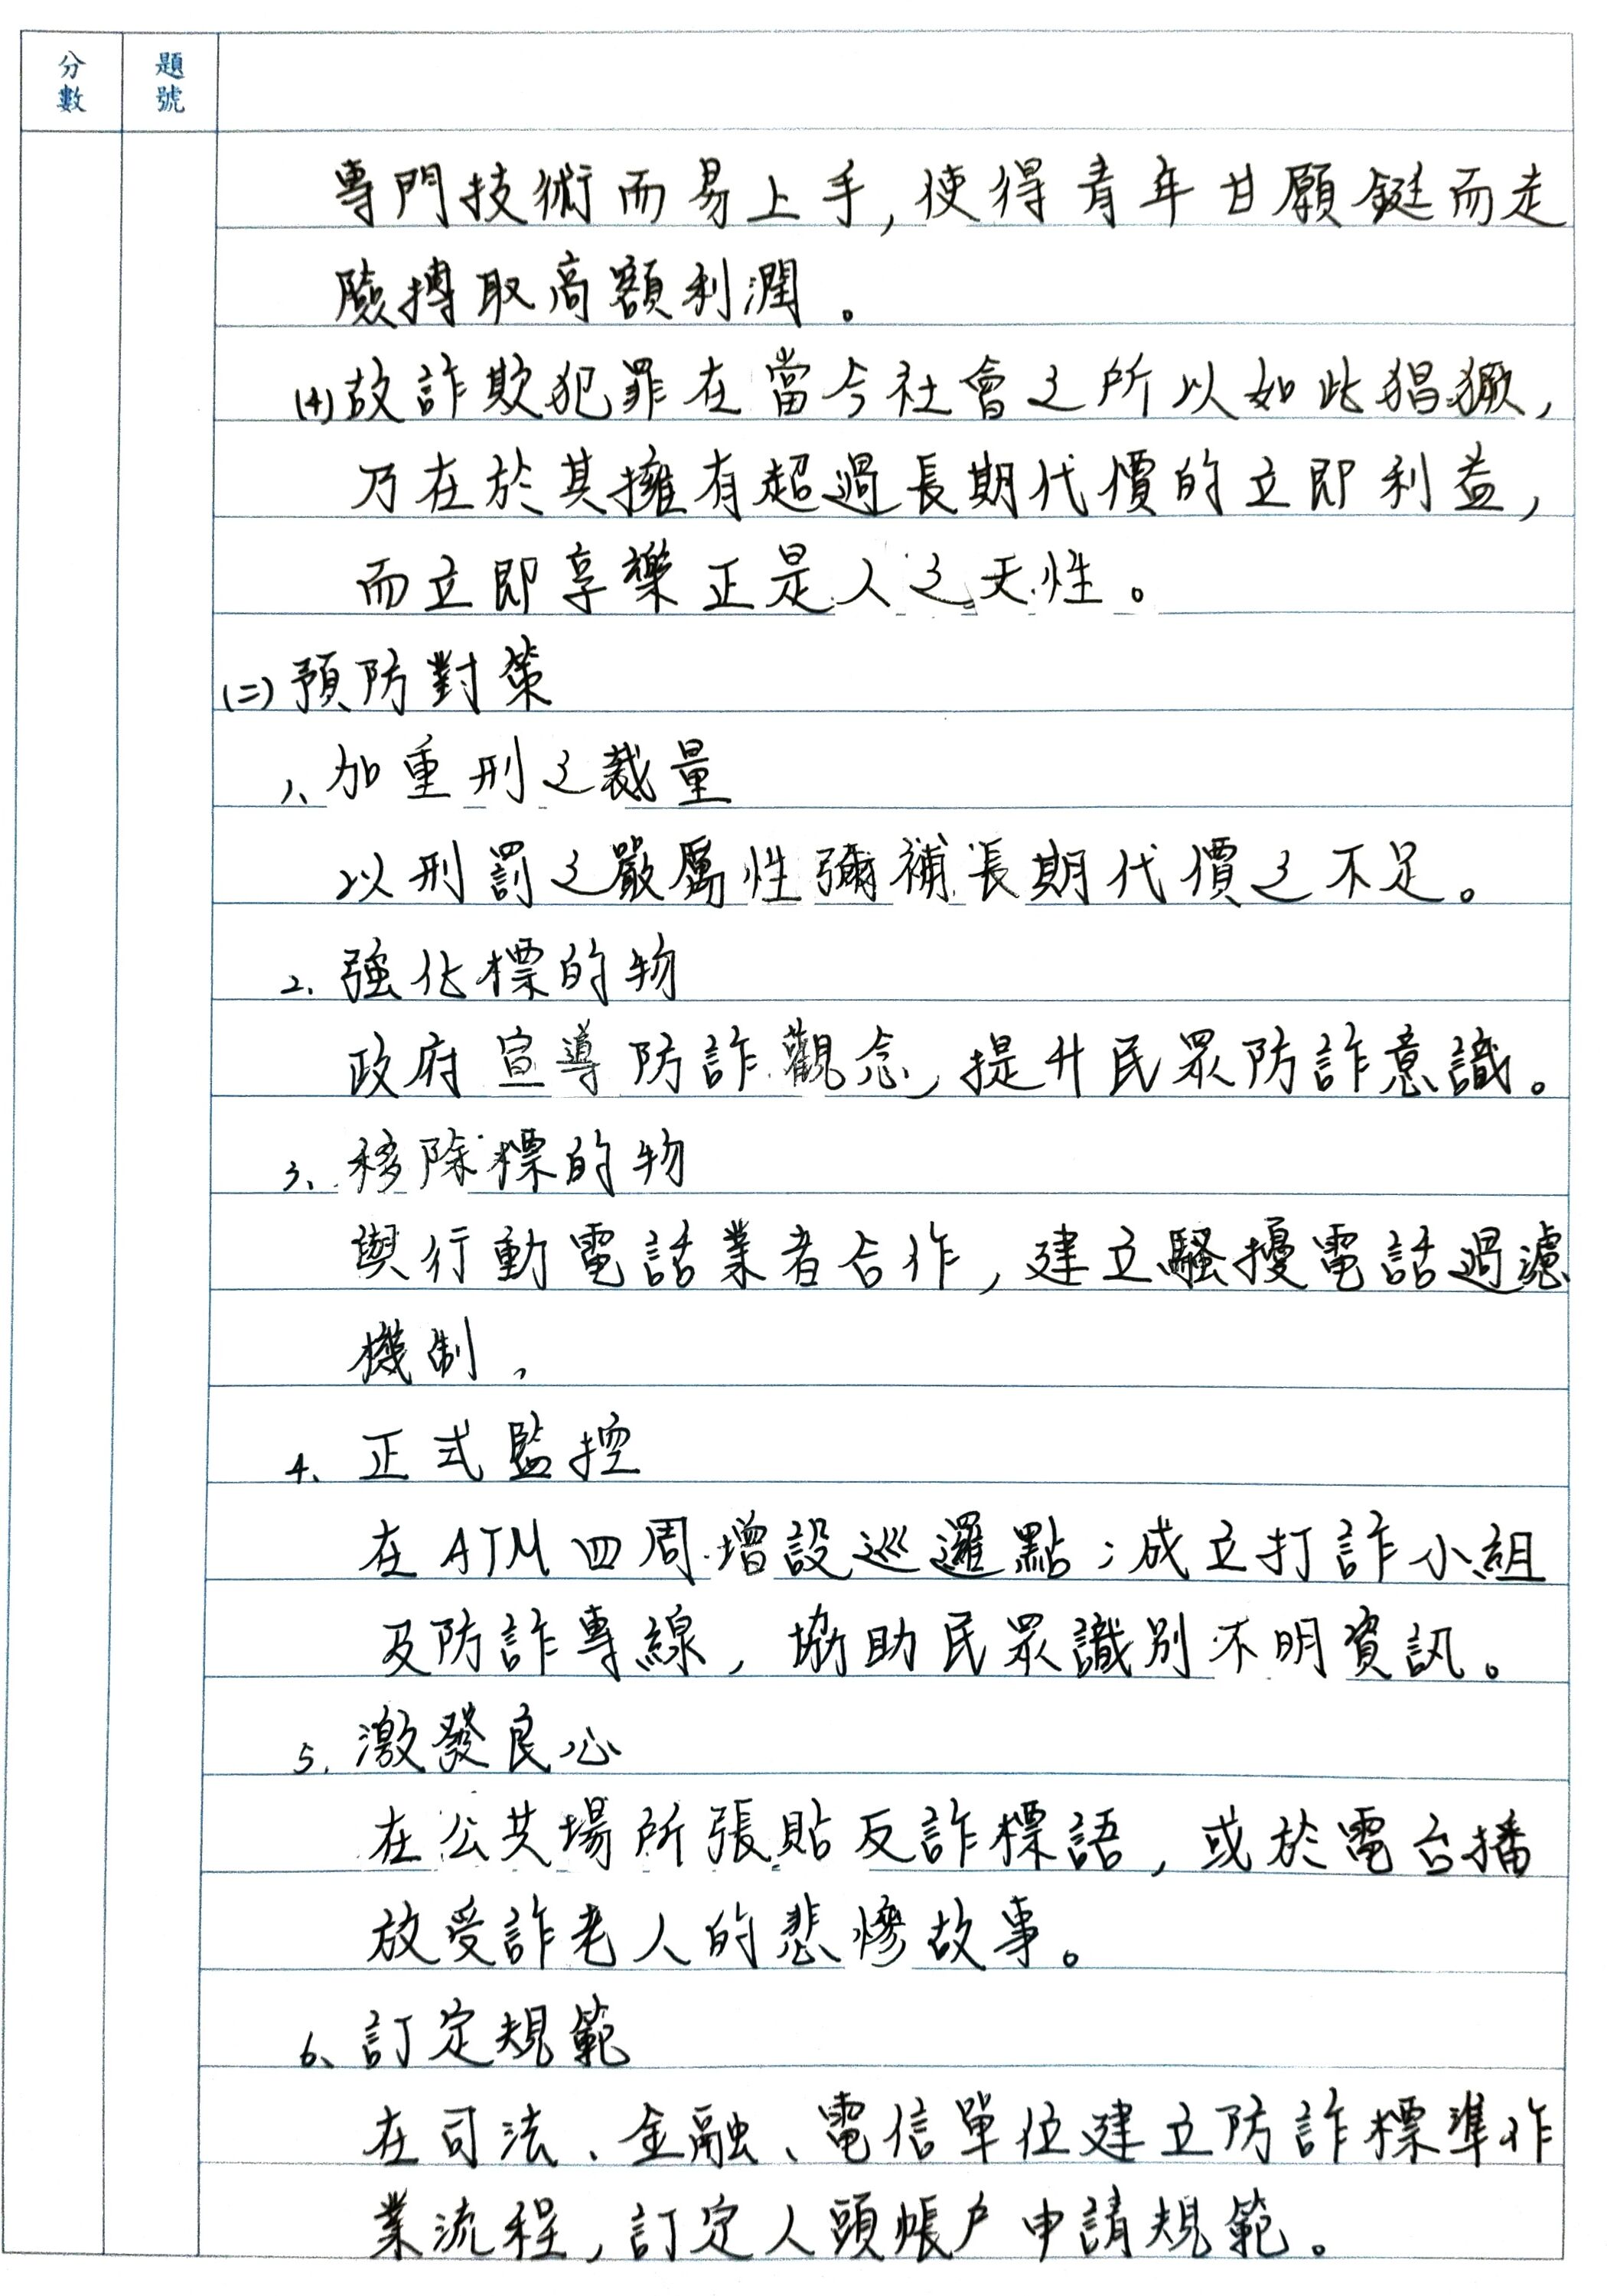 分數 題號
專門技術而易上手,使得青年甘願鋌而走
險搏取高額利潤。
(4)故詐欺犯罪在當今社會之所以如此猖獗,
乃在於其擁有超過長期代價的立即利益,
而立即享樂正是人之天性。
(二)預防對策
1、加重刑之裁量
以刑罰之嚴厲性彌補長期代價之不足。
2、強化標的物
政府宣導防詐觀念,提升民眾防詐意識。
3、移除標的物
與行動電話業者合作,建立騷擾電話過濾
機制。
4、正式監控
在ATM四周增設巡邏點;成立打詐小組
及防詐專線,協助民眾識別不明資訊。
5、激發良心
在公共場所張貼反詐標語,或於電台播
放受詐老人的悲慘故事。
6、訂定規範
在司法、金融、電信單位建立防詐標準作
業流程,訂定人頭帳戶申請規範。